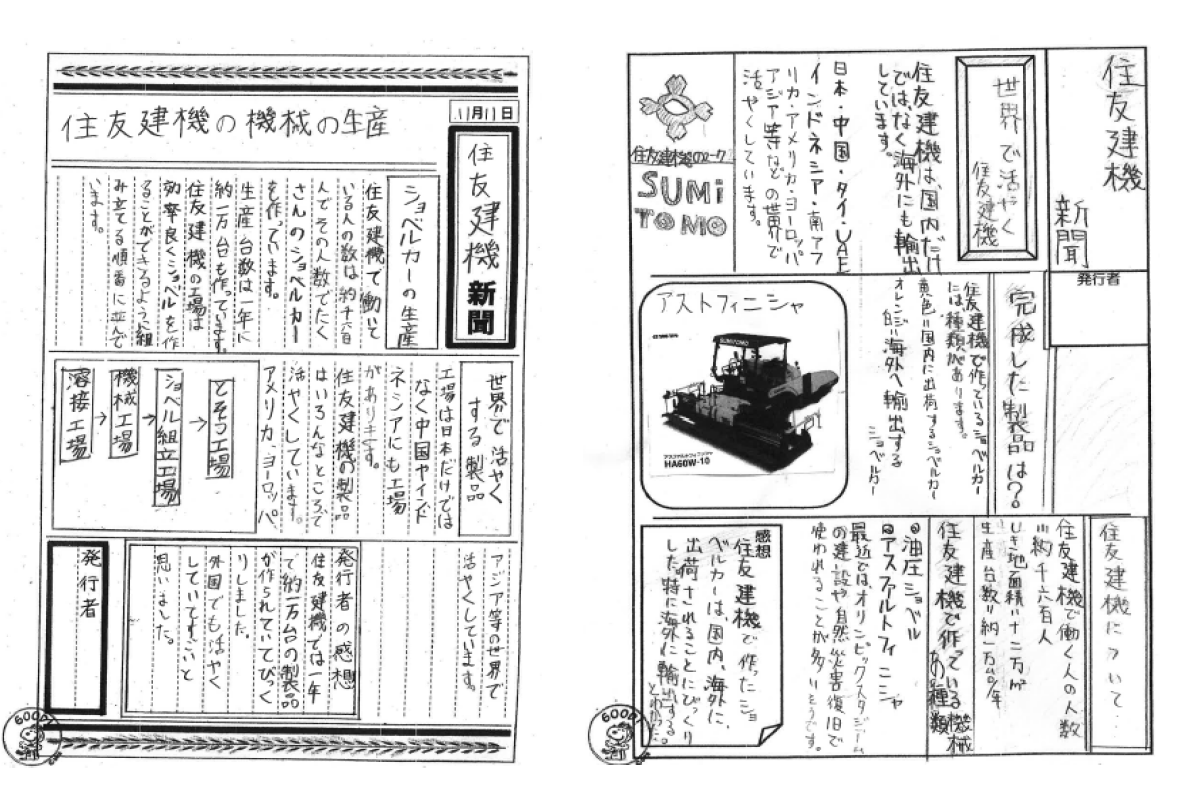 11月11日
住友建機の機械の生産
住友建機新聞
ショベルカーの生産
住友建機で働いて
いる人の数は約千六百
人でその人数でたく
さんのショベルカー
を作っています。
生産台数は一年に
納一万台も作っています。
住友建機の工場は
効率良くショベルを作
ることができるように組
み立てる順番に並んで
います。
世界で活やく
する製品
工場は日本だけでは
なく中国やインド
ネシアにも工場
があります。
住友建機の製品
はいろんなところで
活やくしています。
アメリカ・ヨーロッパ、
とそう工場
ショベル組立工場
機械工場
溶接工場
アジア等の世界で
活やくしています。
発行者の感想
住友建機では一年
で納一万台の製品
が作られていてびっく
りしました。
外国でも活やく
していてすごいと
思いました。
発行者
GOOD
住友建機
新聞
発行者
世界で活やく
住友建機
住友建機は、国内だけ
ではなく海外にも輸出
しています。
日本・中国・タイ・UAE
インドネシア・南アフ
リカ・アメリカ・ヨーロッパ
アジア等などの世界で
活やくしています。
住友建機のマーク
SUMi
TOMO
完成した製品は?
住友建機で作っているショベルカー
には種類があります。
黄色=国内に出荷するショベルカー
オレンジ=海外へ輸出する
ショベルカー
アストフィニシャ
SUMITOMO
アスファルトフィニッシャ
HA60W-10
住友建機について…
住友建機で働く人の人数
=納千六百人
しき地面積=十二万㎡
生産台数=納一万台/年
住友建機で作っている機械
の種類
油圧ショベル
アスファルトフィニシャ
最近では、オリンピックスタジアム
の建設や自然災害復旧で
使われることが多いそうです。
感想
住友建機で作ったショ
ベルカーは、国内、海外に、
出荷されることにびっくり
した。特に海外に輸出する
とわかった。
GOOD